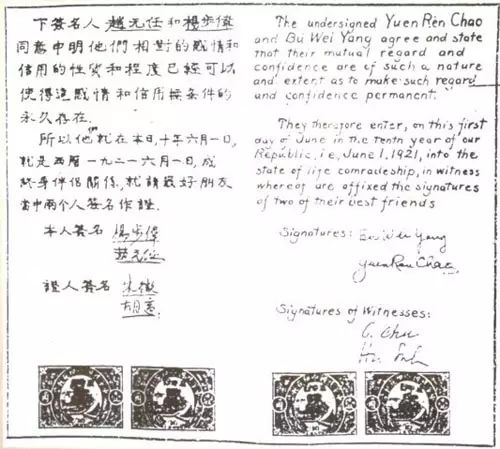 下簽名人趙元任和楊步偉
同意申明他們相對的感情和
信用的性質和程度已經可以
使得這感情和信用無條件的
永久存在.
所以他們就在本日,十年六月一日,
就是西曆一九二一六月一日,成
終身伴侶關係,就請最好朋友
當中兩个人簽名作證.
本人簽名 楊步偉
趙元任
證人簽名 朱徵
胡適
The undersigned Yuen Ren Chao
and Bu Wei Yang agree and state
that their mutual regard and
confidence are of such a nature
and extent as to make such regard
and confidence permanent.
They therefore enter, on this first
day of June in the tenth year of our
Republic, i.e., June 1, 1921, into the
state of life comradeship, in witness
whereof are affixed the signatures
of two of their best friends
Signatures: Bu Wei Yang
Yuen Ren Chao
Signatures of Witnesses:
C. Chu
Hu Suh